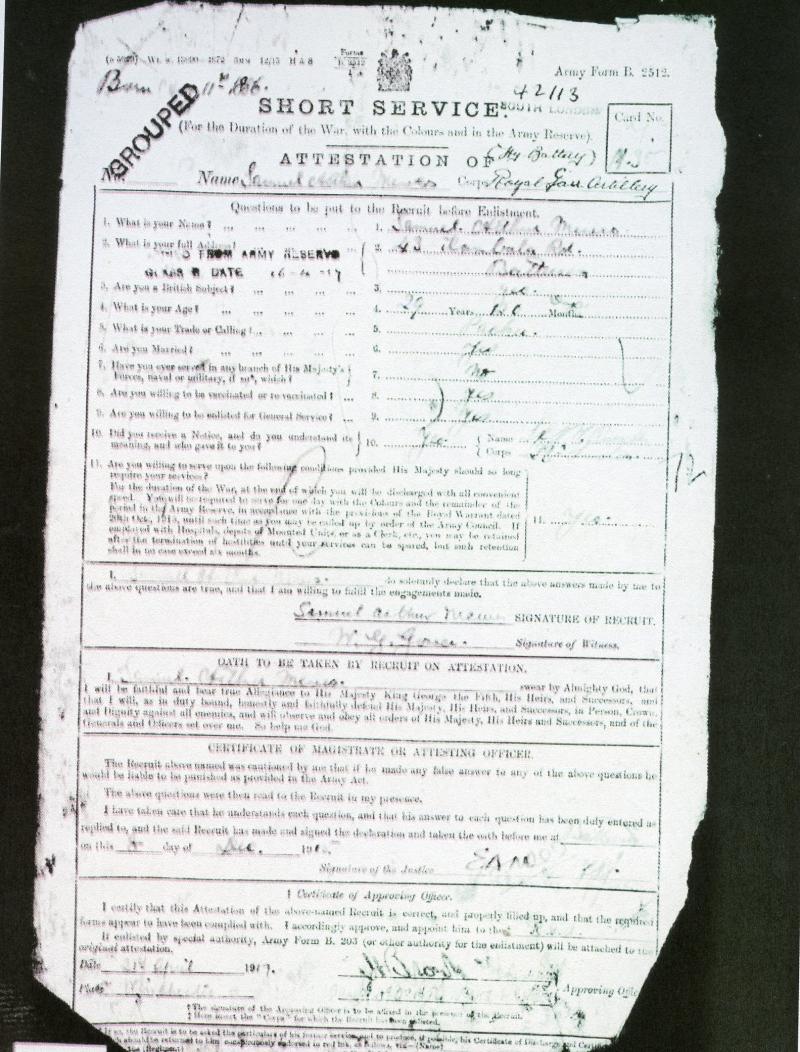 Forms
B. 2512
Army Form B. 2512.
Born 11th 1886.
42113
GROUPED
SHORT SERVICE.
SOUTH LONDON
Card No.
(For the Duration of the War, with the Colours and in the Army Reserve).
ATTESTATION OF
(Hy Battery)
No. Name Samuel Arthur Corps Royal Gar Artillery
Questions to be put to the Recruit before Enlistment.
1. What is your Name? 1. Samuel Arthur
2. What is your full Address? 2. 43 Rd.
FROM ARMY RESERVE
CLASS B DATE 16-4-17
3. Are you a British Subject? 3. Yes.
4. What is your Age? 4. 29 Years Months
5. What is your Trade or Calling? 5.
6. Are you Married? 6. Yes
7. Have you ever served in any branch of His Majesty's
Forces, naval or military, if so, which? 7. No
8. Are you willing to be vaccinated or re-vaccinated? 8. Yes
9. Are you willing to be enlisted for General Service? 9. Yes
10. Did you receive a Notice, and do you understand its
meaning, and who gave it to you? 10. Yes Name
Corps
11. Are you willing to serve upon the following conditions provided His Majesty should so long
require your services?
For the duration of the War, at the end of which you will be discharged with all convenient
speed. You will be required to serve for one day with the Colours and the remainder of the
period in the Army Reserve, in accordance with the provisions of the Royal Warrant dated
20th Oct., 1915, until such time as you may be called up by order of the Army Council. If
employed with Hospitals, depots of Mounted Units, or as a Clerk, etc., you may be retained
after the termination of hostilities until your services can be spared, but such retention
shall in no case exceed six months.
11. Yes
I, do solemnly declare that the above answers made by me to
the above questions are true, and that I am willing to fulfil the engagements made.
Samuel Arthur SIGNATURE OF RECRUIT.
W. G. Signature of Witness.
OATH TO BE TAKEN BY RECRUIT ON ATTESTATION.
I, Samuel Arthur swear by Almighty God, that
I will be faithful and bear true Allegiance to His Majesty King George the Fifth, His Heirs, and Successors, and
that I will, as in duty bound, honestly and faithfully defend His Majesty, His Heirs, and Successors, in Person, Crown,
and Dignity against all enemies, and will observe and obey all orders of His Majesty, His Heirs and Successors, and of the
Generals and Officers set over me. So help me God.
CERTIFICATE OF MAGISTRATE OR ATTESTING OFFICER.
The Recruit above named was cautioned by me that if he made any false answer to any of the above questions he
would be liable to be punished as provided in the Army Act.
The above questions were then read to the Recruit in my presence.
I have taken care that he understands each question, and that his answer to each question has been duly entered as
replied to, and the said Recruit has made and signed the declaration and taken the oath before me at
on this 8 day of Dec. 1915
Signature of the Justice
† Certificate of Approving Officer.
I certify that this Attestation of the above-named Recruit is correct, and properly filled up, and that the required
forms appear to have been complied with. I accordingly approve, and appoint him to the‡
If enlisted by special authority, Army Form B. 203 (or other authority for the enlistment) will be attached to the
original attestation.
Date April 1917.
Place Approving Office
† The signature of the Approving Officer is to be affixed in the presence of the Recruit.
‡ Here insert the "Corps" for which the Recruit has been enlisted.
If so, the Recruit is to be asked the particulars of his former service, and to produce, if possible, his Certificate of Discharge and
(Regiment)